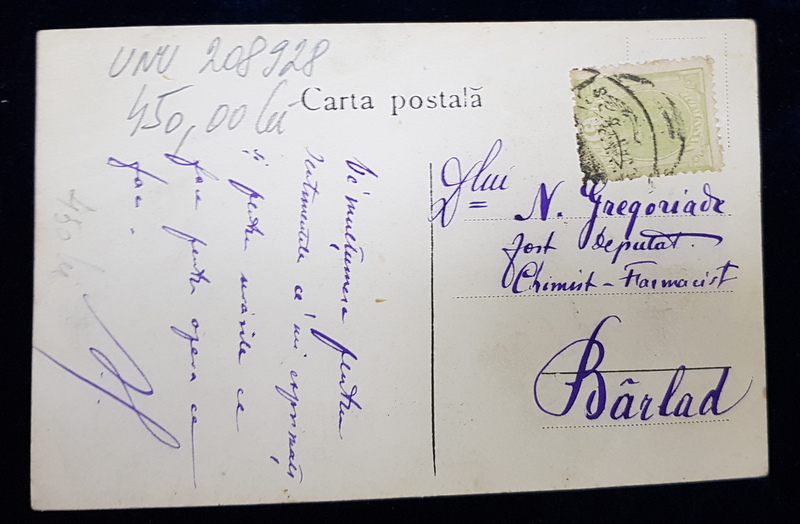 UNU 208928
450,00 lei
Carta postală
Vĕ mulţumesc pentru
sentimentele ce'mi exprimaţi
şi pentru urările ce
faci pentru opera ce
fac.
Dlui
N. Gregoriade
fost deputat.
Chimist - Farmacist
Bârlad
450 lei